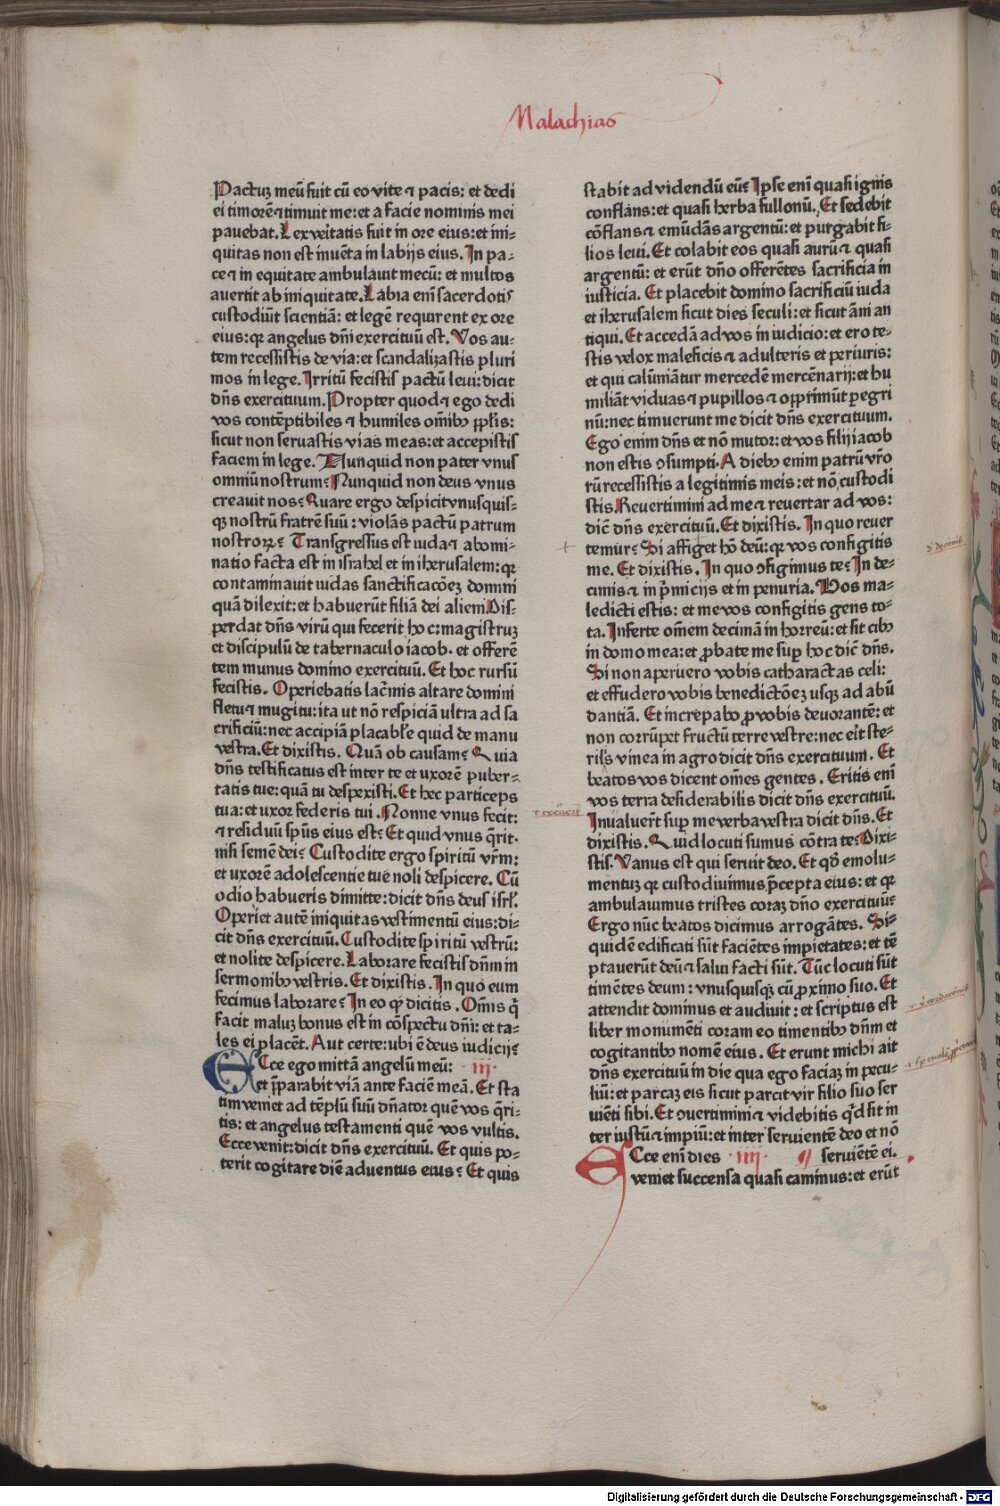 Malachias
Pactuꝫ meū fuit cū eo vite ⁊ pacis: et dedi
ei timorē ⁊ timuit me: et a facie nominis mei
pauebat. Lex veritatis fuit in ore eius: et ini⸗
quitas non est inuēta in labijs eius. In pa⸗
ce ⁊ in equitate ambulauit mecū: et multos
auertit ab iniquitate. Labia eni᷑ sacerdotis
custodiūt scientiā: et legē requirent ex ore
eius: qꝛ angelus dn̄i exercituū est. Vos au⸗
tem recessistis de via: et scandalizastis pluri
mos in lege. Irritū fecistis pactū leui: dicit
dn̄s exercituum. Propter quod ⁊ ego dedi
vos contēptibiles ⁊ humiles om̄ibꝰ pp̄lis:
sicut non seruastis vias meas: et accepistis
faciem in lege. Nunquid non pater vnus
omniū nostrum? Nunquid non deus vnus
creauit nos? Quare ergo despicit vnusquis⸗
qꝫ nostrū fratrē suū: violās pactū patrum
nostroꝝ? Transgressus est iuda ⁊ abomi⸗
natio facta est in israhel et in iherusalem: qꝛ
contaminauit iudas sanctificacōeꝫ domini
quā dilexit: et habuerūt filiā dei alieni. Dis⸗
perdat dn̄s virū qui fecerit hoc: magistruꝫ
et discipulū de tabernaculo iacob. et offerē
tem munus domino exercituū. Et hoc rursū
fecistis. Operiebatis lac̄mis altare domini
fletu ⁊ mugitu: ita ut nō respiciā ultra ad sa
crificiū: nec accipiā placabłe quid de manu
vestra. Et dixistis. Quā ob causam? Quia
dn̄s testificatus est inter te et uxorē puber⸗
tatis tue: quā tu despexisti. Et hec particeps
tua: et uxor federis tui. Nonne vnus fecit:
⁊ residuū sp̄us eius est? Et quid vnus q̄rit.
nisi semē dei? Custodite ergo spiritū vr̄m:
et uxorē adolescentie tue noli despicere. Cū
odio habueris dimitte: dicit dn̄s deus isrł.
Operiet autē iniquitas vestimentū eius: di⸗
cit dn̄s exercituū. Custodite spiritū vestrū:
et nolite despicere. Laborare fecistis dn̄m in
sermonibꝰ vestris. Et dixistis. In quo eum
fecimus laborare? In eo qꝙ dicitis. Om̄is q̄
facit maluꝫ bonus est in cōspectu dn̄i: et ta⸗
les ei placēt. Aut certe: ubi ē deus iudicij?
ECce ego mittā angelū meū: · III ·
et p̄parabit viā ante faciē meā. Et sta
tim veniet ad tēplū suū dn̄ator quē vos q̄ri⸗
tis: et angelus testamenti quē vos vultis.
Ecce venit: dicit dn̄s exercituū. Et quis po⸗
terit cogitare diē aduentus eius? Et quis
stabit ad videndū eū? Ipse eni᷑ quasi ignis
conflans: et quasi herba fullonū. Et sedebit
cōflans ⁊ emūdās argentū: et purgabit fi⸗
lios leui. Et colabit eos quasi aurū ⁊ quasi
argentū: et erūt dn̄o offerētes sacrificia in
iusticia. Et placebit domino sacrificiū iuda
et iherusalem sicut dies seculi: et sicut āni an
tiqui. Et accedā ad vos in iudicio: et ero te⸗
stis velox maleficis ⁊ adulteris et periuris:
et qui calūniātur mercedē mercēnarij: et hu
miliāt viduas ⁊ pupillos ⁊ opprimūt p̱egri
nū: nec timuerunt me dicit dn̄s exercituum.
Ego enim dn̄s et nō mutor: et vos filij iacob
non estis ꝯsumpti. A diebꝰ enim patrū vr̄o
rū recessistis a legitimis meis: et nō custodi
stis. Reuertimini ad me ⁊ reuertar ad vos:
dic̄ dn̄s exercituū. Et dixistis. In quo reuer
temur? Si affiget hō deū: qꝛ vos configitis
me. Et dixistis. In quo ꝯfigimus te? In de⸗
cimis ⁊ in p̄micijs et in penuria. Vos ma⸗
ledicti estis: et me vos configitis gens to⸗
ta. Inferte om̄em decimā in horreū: et sit cibꝰ
in domo mea: et ꝓbate me sup̱ hoc dic̄ dn̄s.
Si non aperuero vobis catharactas celi:
et effudero vobis benedictōeꝫ usqꝫ ad abū
dantiā. Et increpabo ꝓ vobis deuorantē: et
non corrūpet fructū terre vestre: nec erit ste⸗
rilis vinea in agro dicit dn̄s exercituum. Et
beatos vos dicent om̄es gentes. Eritis eni᷑
vos terra desiderabilis dicit dn̄s exercituū.
Inualuer̄t sup̱ me verba vestra dicit dn̄s. Et
dixistis. Quid locuti sumus cōtra te? Dixi⸗
stis. Vanus est qui seruit deo. Et qd̄ emolu⸗
mentuꝫ qꝛ custodiuimus p̄cepta eius: et qꝛ
ambulauimus tristes coraꝫ dn̄o exercituū?
Ergo nūc beatos dicimus arrogātes. Si⸗
quidē edificati sūt faciētes impietates: et tē
ptauerūt deū ⁊ salui facti sūt. Tūc locuti sūt
timētes deum: vnusquisqꝫ cū ꝓximo suo. Et
attendit dominus et audiuit: et scriptus est
liber monumēti coram eo timentibꝰ dn̄m et
cogitantibꝰ nomē eius. Et erunt michi ait
dn̄s exercituū in die qua ego faciaꝫ in pecu⸗
liū: et parcaꝫ eis sicut parcit vir filio suo ser
uiēti sibi. Et ꝯuertimini ⁊ videbitis qd̄ sit in
ter iustū ⁊ impiū: et inter seruientē deo et nō
ECce eni᷑ dies · IIII · ¶ seruiētē ei.
veniet succensa quasi caminus: et erūt
Digitalisierung gefördert durch die Deutsche Forschungsgemeinschaft - DFG